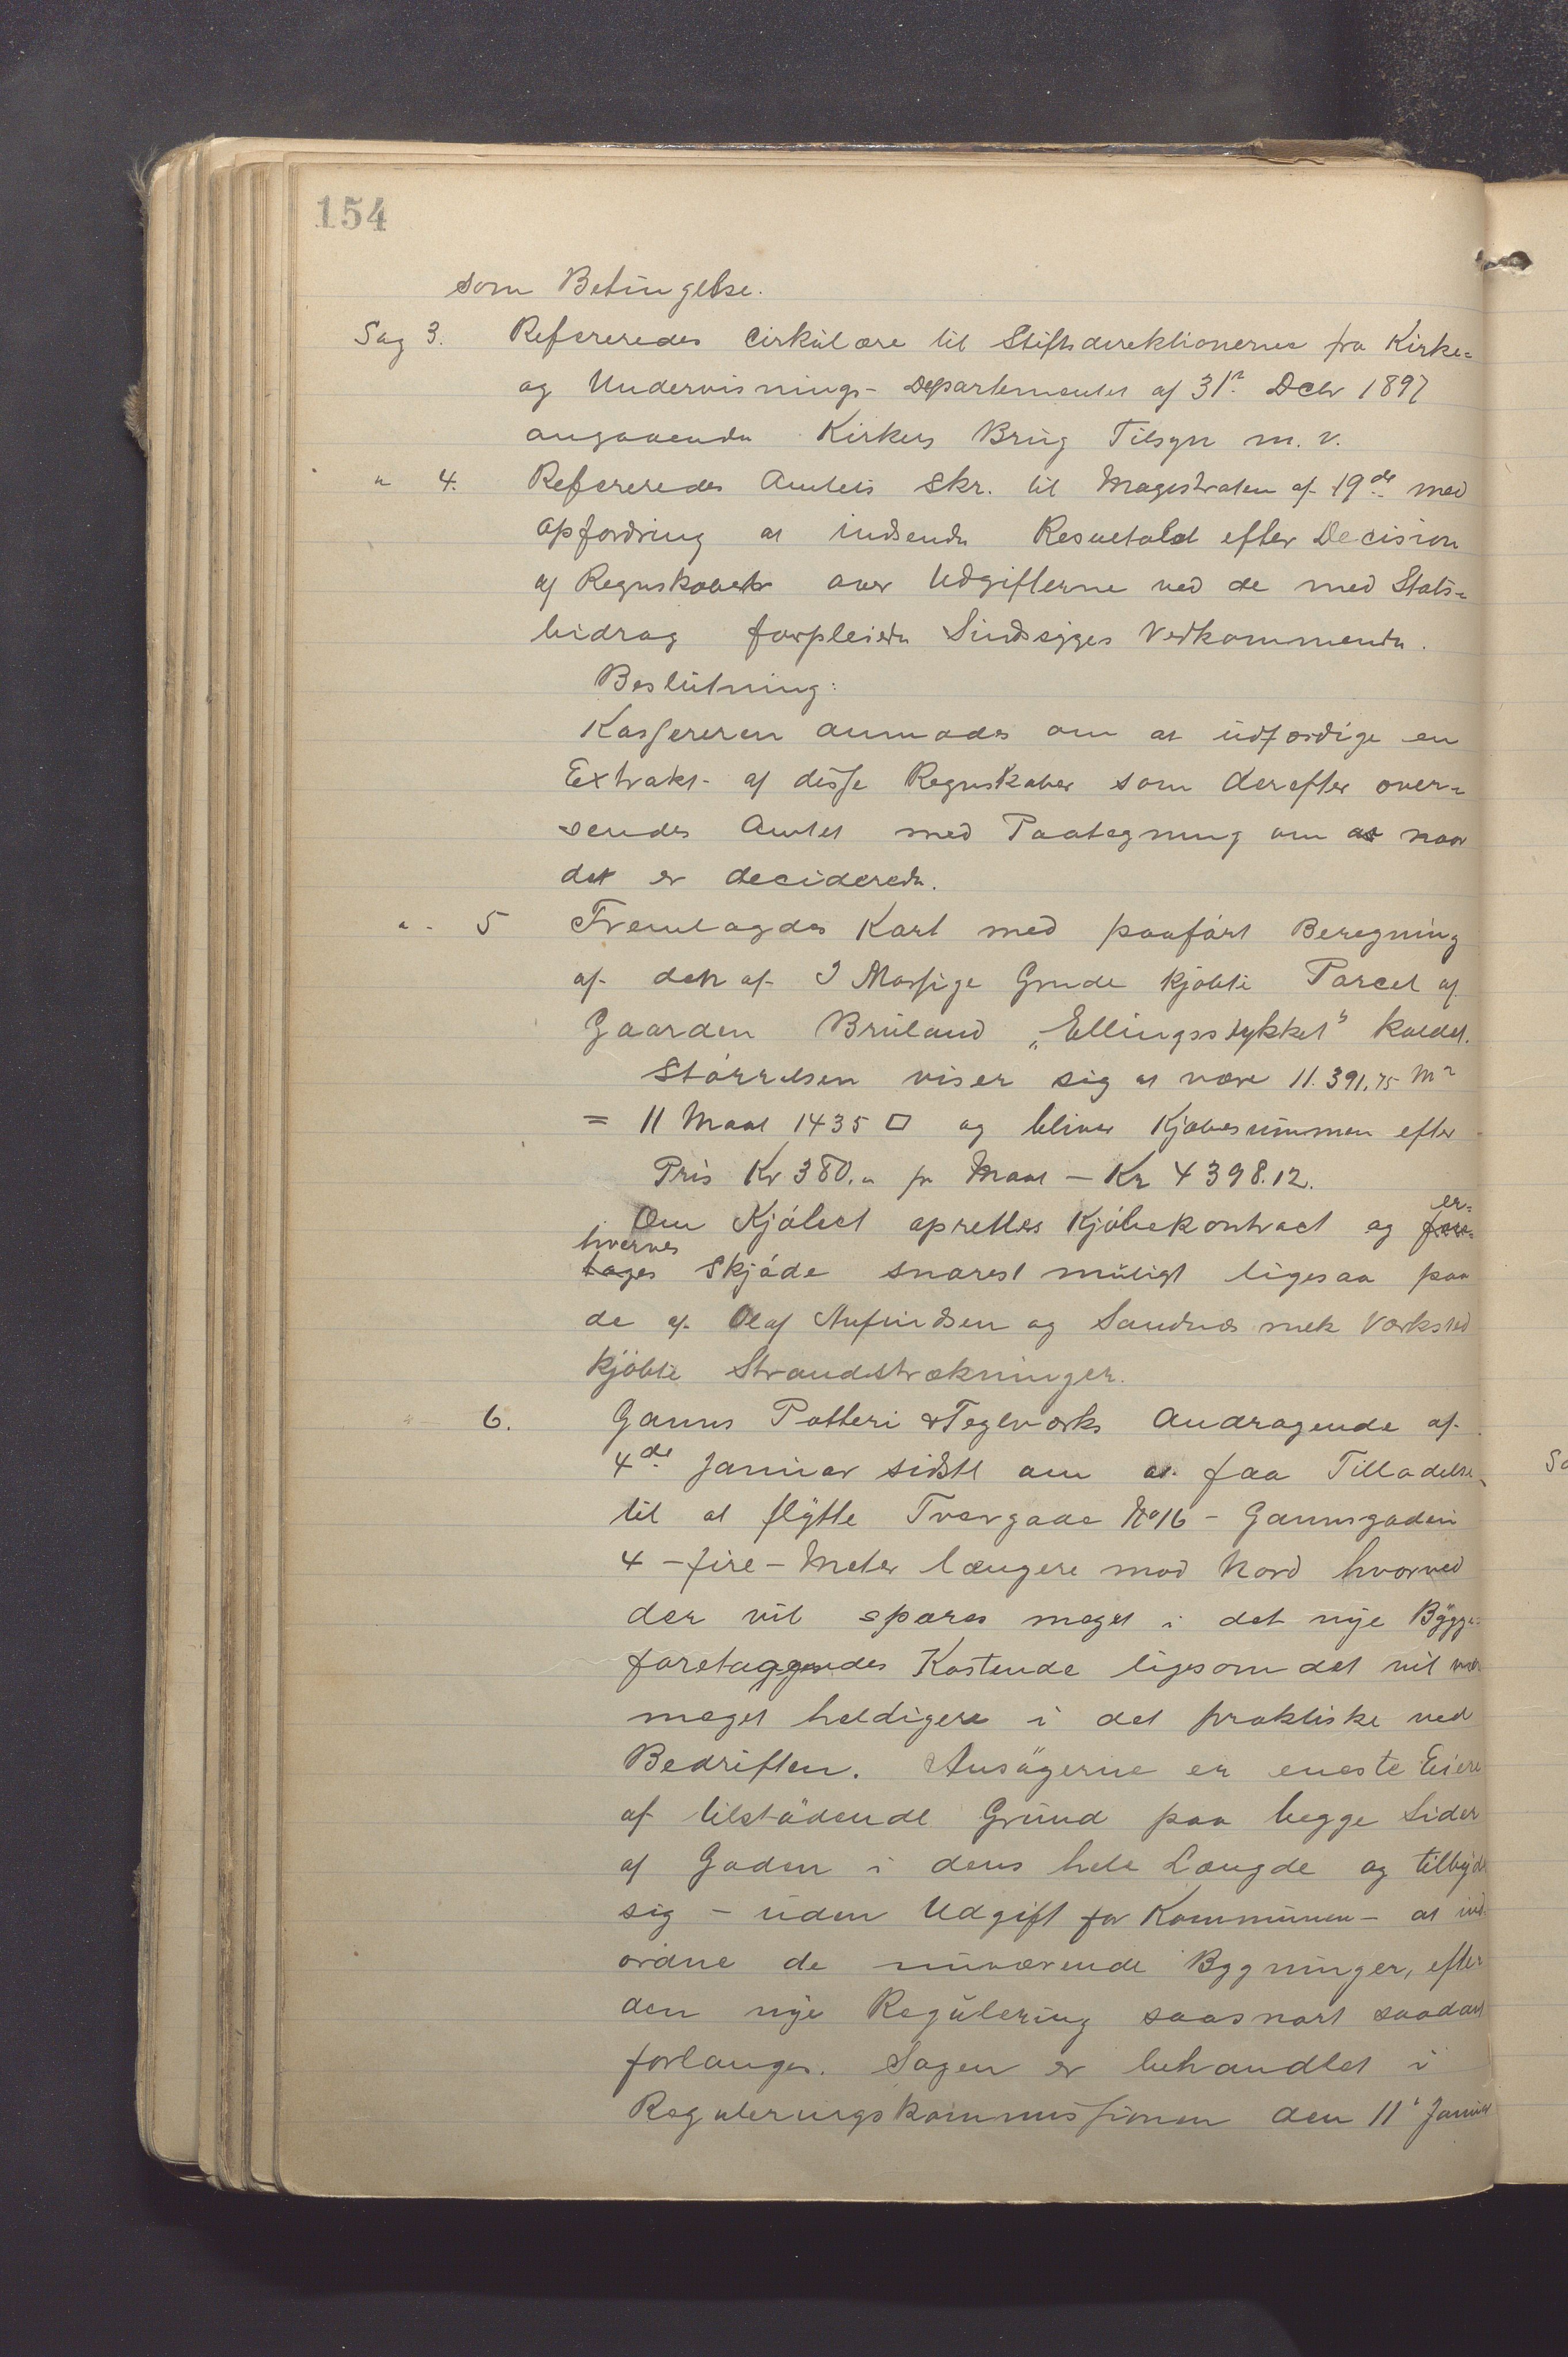 154
som Betingelse.
Sag 3. Refereredes Cirkulære til Stiftsdirektionerne fra Kirke=
og Undervisnings- Departementet af 31te Dcbr 1897
angaaende Kirkers Brug Tilsyn m. v.
" 4. Refereredes Amtets Skr. til Magistraten af 19de med
Opfordring at indsende Resultatet efter Decision
af Regnskabet over Udgifterne ved de med Stats=
bidrag forpleiede Sindsyges Vedkommende.
Beslutning:
Kassereren anmodes om at udfærdige en
Extrakt af disse Regnskaber som derefter over=
sendes Amtet med Paategning om at naar
det er deciderede.
" - 5 Fremlagdes Kart med paaført Beregning
af den af I Massige Grude kjøbte Parcel af
Gaarden Bruland „Ellingsstykket" kaldet.
Størrelsen viser sig at være 11.391,75 M2
= 11 Maal 1435 □ og bliver Kjøbesummen efter
Pris Kr 380." pr Maal – Kr 4398.12.
Om Kjøbet oprettes Kjøbekontract og fore= er=
tages hverves Skjøde snarest muligt ligesaa paa
de af Olaf Aufindsen og Sandnæs mek Værksted
kjøbte Strandstrækninger.
" 6. Ganns Potteri & Teglværks Andragende af
4de Januar sidstl om at faa Tilladelse
til at flytte Tvergade No 16 – Gannsgaden
4 – fire – Meter længere mod Nord hvorved
der vil spares meget i det nye Bygge-
foretaggendes Kostende ligesom det vil være
meget heldigere i det praktiske ved
Bedriften. Ansøgerne er eneste Eiere
af tilstødende Grund paa begge Sider
af Gaden i dens hele Længde og tilbyde
sig – uden Udgift for Kommunen – at ind
ordne de nuværende Bygninger, efter
den nye Regulering saasnart saadant
forlanges. Sagen er behandlet i
Reguleringskommissionen den 11' Januar